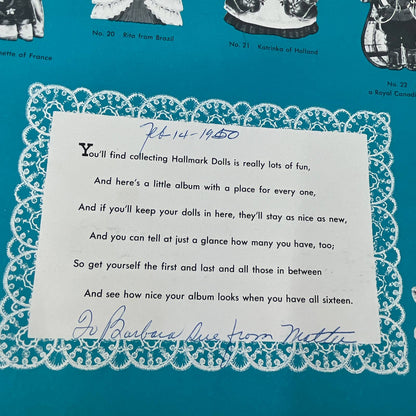 nette of France
No. 20 Rita from Brazil
No. 21 Katrinka of Holland
No. 22
a Royal Canadi
Feb 14-1950
You'll find collecting Hallmark Dolls is really lots of fun,
And here's a little album with a place for every one,
And if you'll keep your dolls in here, they'll stay as nice as new,
And you can tell at just a glance how many you have, too;
So get yourself the first and last and all those in between
And see how nice your album looks when you have all sixteen.
To Barbara Sue from Mother